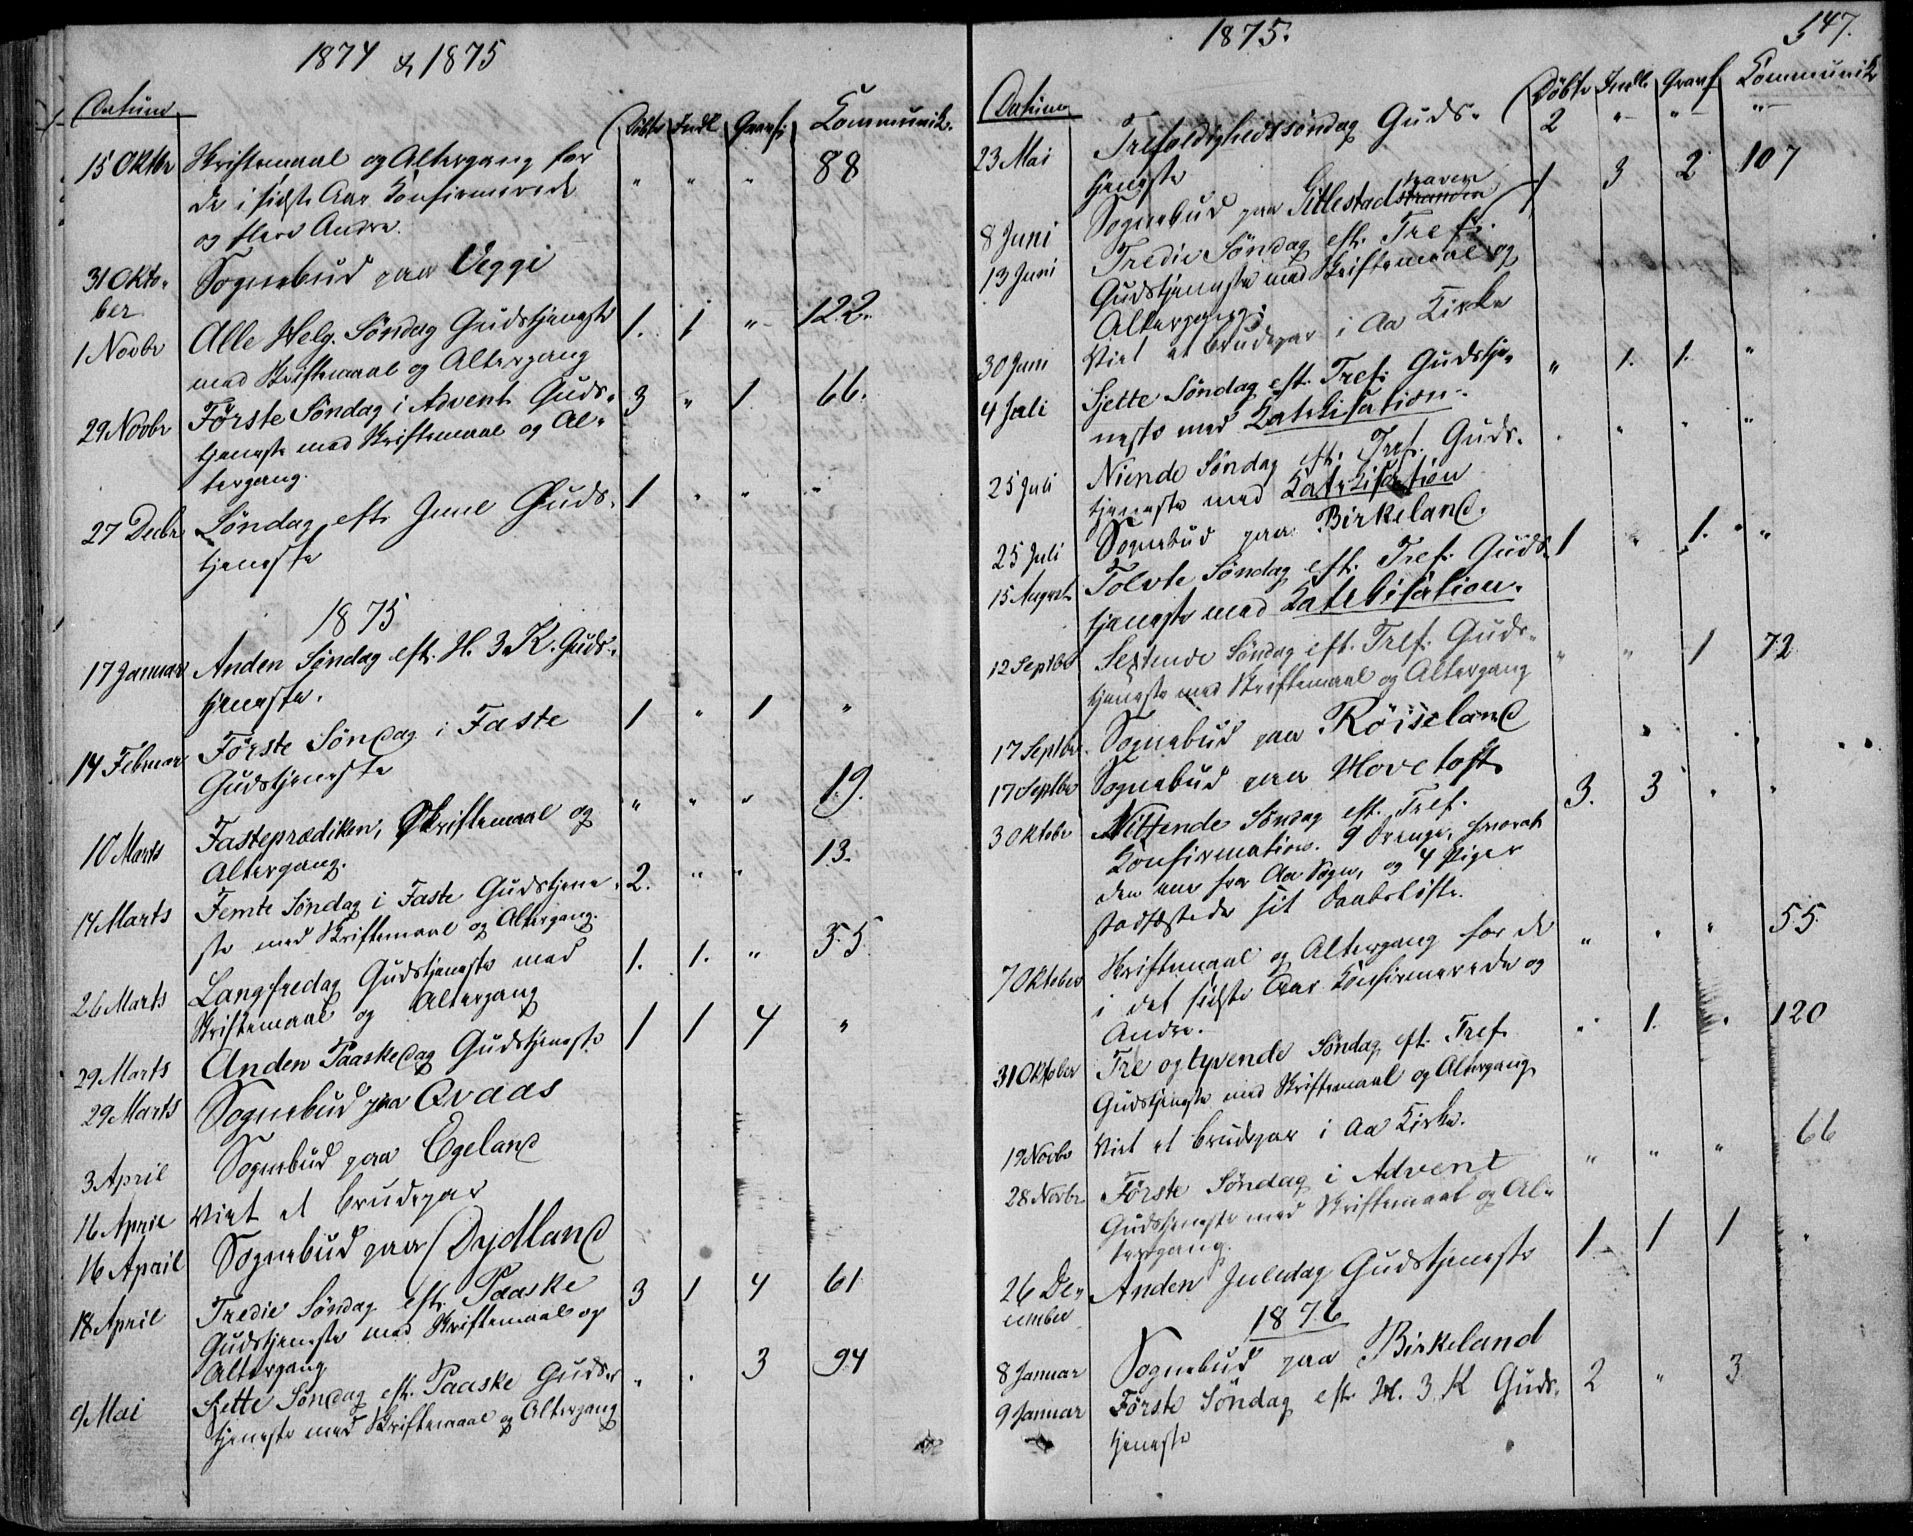 1874 & 1875
Datum Döbte Indl. Graaf. Kommunik.
15 Oktbr Skriftemaal og Altergang for " " " 88
de i sidste Aar Konfirmerede
og flere Andre.
31 Okto- Sognebud paa Veggi
ber
1 Novbr Alle Helg. Søndag Gudstjeneste 1. 1 " 122.
med Skriftemaal og Altergang
29 Novbr Første Søndag i Advent Guds- 3 " 1. 66.
tjeneste med Skriftemaal og Al-
tergang.
27 Decbr Søndag eft. Juul Guds- 1 " " "
tjeneste
1875
17 Januar Anden Søndag eft. H. 3 K. Guds-
tjeneste.
14 Februar Første Søndag i Faste 1 " 1 "
Gudstjeneste
10 Marts Fasteprædiken, Skriftemaal og " " " 19.
Altergang.
14 Marts Femte Søndag i Faste Gudstjene- 2. " " 13.
ste med Skriftemaal og Altergang.
26 Marts Langfredag Gudstjeneste med 1. 1. " 55
Skriftemaal og Altergang
29 Marts Anden Paaskedag Gudstjeneste 1 1 4 "
29 Marts Sognebud paa Qvaas
3 April Sognebud paa Egeland
16 April Viet et Brudepar
16 April Sognebud paa Drydland
18 April Tredie Søndag eft. Paaske 3 1 4 61
Gudstjeneste med Skriftemaal og
Altergang
9 Mai Sjette Søndag eft. Paaske Guds- " . 3 94
tjeneste med Skriftemaal og Altergang
1875.
147.
Datum Döbte Indl. Graaf. Kommunik
23 Mai Trefoldighedssøndag Guds- 2 " " "
tjeneste
8 Juni Sognebud paa Gitlestad
13 Juni Tredie Søndag eft. Tref. 1 3 2 107
Gudstjeneste med Skriftemaal og
Altergang.
30 Juni Viet et Brudepar i Aa Kirke
4 Juli Sjette Søndag eft. Tref. Gudstje- " 1. 1. "
neste med Katekisation.
25 Juli Niende Søndag eft. Tref. Guds- " " " "
tjeneste med Katekisation
25 Juli Sognebud paa Birkeland.
15 August Tolvte Søndag eft. Tref. Guds- 1 " 1. "
tjeneste med Katekisation.
12 Septbr Sextende Søndag eft. Tref. Guds- " " 1 72
tjeneste med Skriftemaal og Altergang
17 Septbr. Sognebud paa Røiseland
17 Septbr Sognebud paa Hovetoft
3 Oktobr Nittende Søndag eft. Tref. 3. 3 " "
Konfirmation. 9 Drenge, hvoraf
den ene fra Aa Sogn, og 4 Piger
stadfæstede sit Daabsløfte.
7 Oktober Skriftemaal og Altergang for de " " " 55
i det sidste Aar Konfirmerede og
Andre.
31 Oktober Tre og tyvende Søndag eft. Tref. " 1. " 120
Gudstjeneste med Skriftemaal og Altergang
19 Novbr Viet et Brudepar i Aa Kirke.
28 Novbr. Første Søndag i Advent " " " 66
Gudstjeneste med Skriftemaal og Al-
tergang.
26 De- Anden Juledag Gudstjeneste 1 1 1 "
cember
1876
8 Januar Sognebud paa Birkeland
9 Januar Første Søndag eft. H. 3 K Guds- 2 " 3
tjeneste